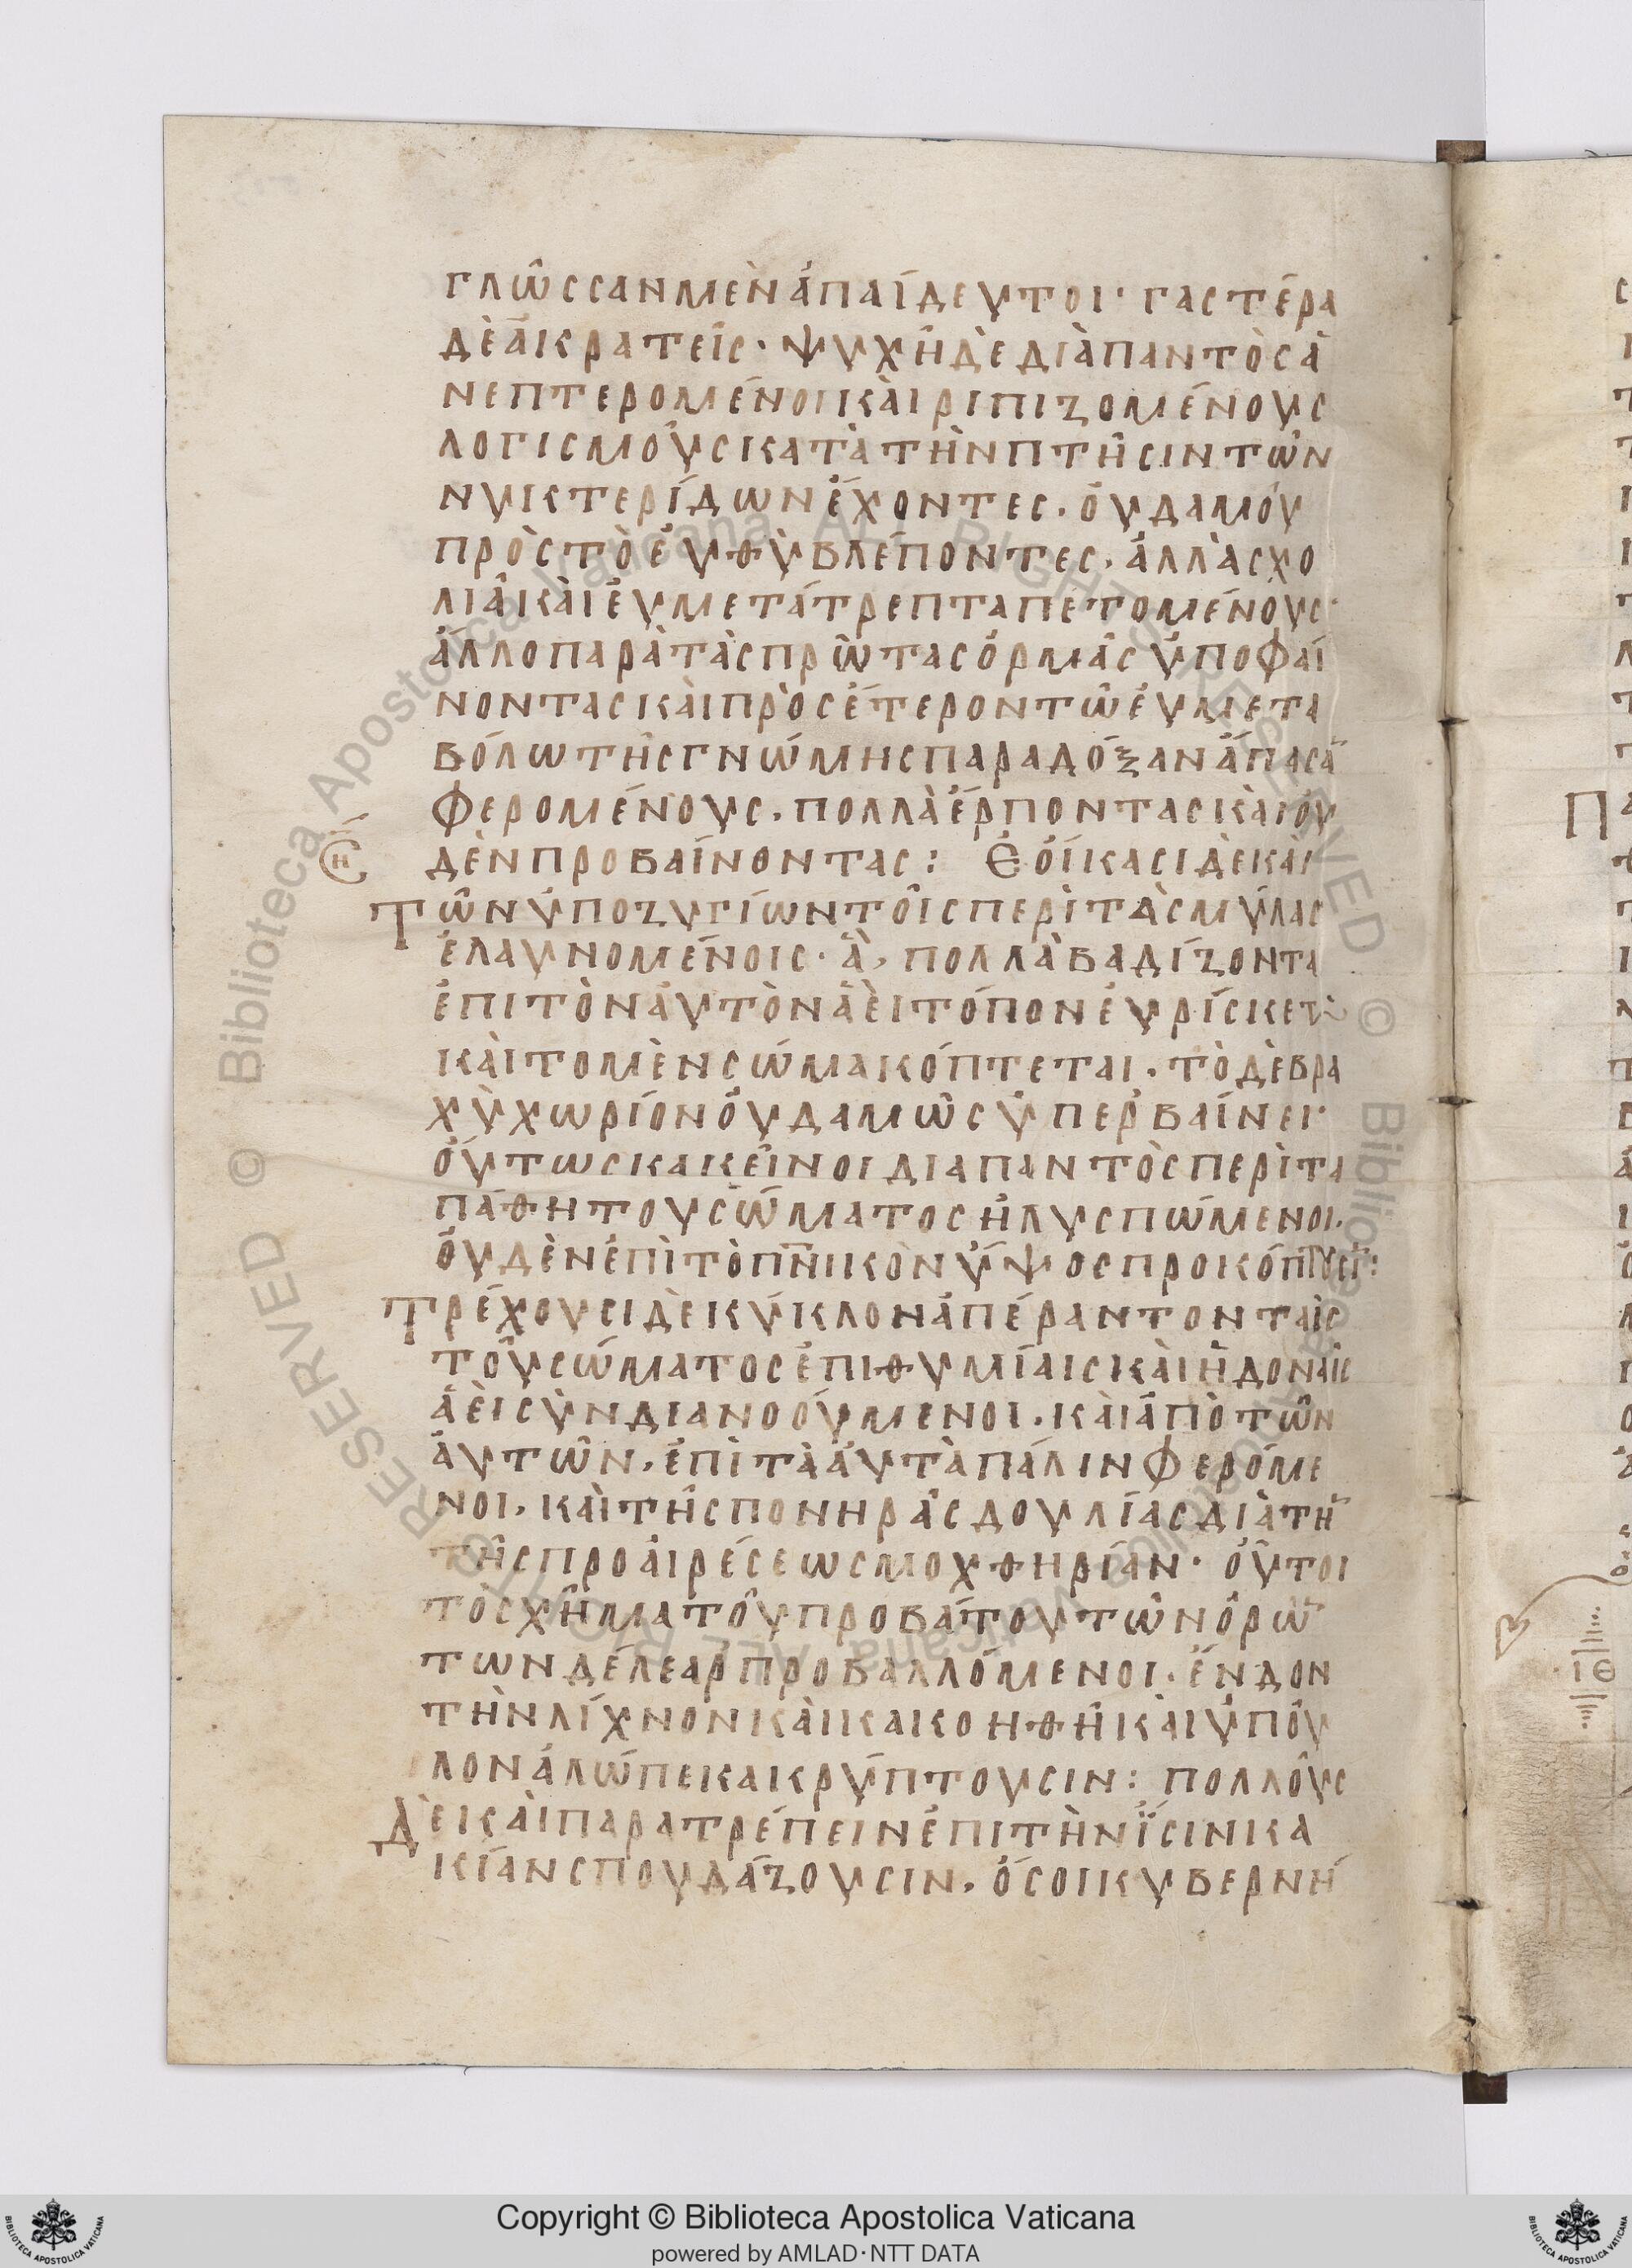 γλῶσσαν μὲν ἀπαίδευτοι· γαστέρα
δὲ ἀκρατεῖς· ψυχῆ δὲ διὰ παντὸς ἀ
νεπτερομένοι καὶ ριπιζομένους
λογισμοὺς κατὰ τὴν πτῆσιν τῶν
νυκτερίδων ἔχοντες. οὐδαμοῦ
πρὸς τὸ εὐθὺ βλέποντες. ἀλλὰ σχο
λιᾶ καὶ εὐμετάτρεπτα πετομένους·
ἄλλο παρὰ τὰς πρώτας ὁρμὰς ὑποφαί
νοντας καὶ πρὸς ἕτερον τῶ εὐμετα
βόλω τῆς γνώμης παρὰ δόξαν ἅπασᾱ
φερομένους. πολλὰ ἕρποντας καὶ οὐ
δὲν προβαίνοντας: Ἐοίκασι δὲ καὶ
τῶν ὑποζυγίων τοῖς περὶ τὰς μύλας
ἐλαυνομένοις· ἃ, πολλὰ βαδίζοντα
ἐπι τὸν αὐτὸν ἀεὶ τόπον εὑρίσκεται
καὶ το μὲν σώμα κόπτεται. τὸ δὲ βρα
χὺ χωρίον οὐδαμῶς ὑπερβαίνει·
οὕτως κακεῖνοι διαπαντὸς περὶ τα
πάθη του σώματος ἠλυσπώμενοι.
οὐδὲν ἐπὶ τὸ πν̄ικὸν ὕψος προκόπτουσῑ:
Τρέχουσι δὲ κύκλον ἀπέραντον ταῖς
τοῦ σώματος ἐπιθυμίαις καὶ ἡδοναῖς
ἀεὶ συνδιανοούμενοι. καὶ ἀπὸ τῶν
αὐτῶν. ἐπὶ τὰ αὐτὰ πάλιν φερόμε
νοι. καὶ τῆς πονηρᾶς δουλίας διὰ τὴ̄
τῆς προαιρέσεως μοχθηρίαν· οὗτοι
τὸ σχῆμα τοῦ προβάτου τῶν ὁρώ̄
των δέλεαρ προβαλλόμενοι. ἔνδον
τὴν λίχνον καὶ κακοηθῆ καὶ ὑποῦ
λον ἀλώπεκα κρύπτουσιν: πολλοὺς
δὲ καὶ παρατρέπειν ἐπι τὴν ἴσιν κα
κίαν σπουδάζουσιν. ὅσοι κυβερνή
Copyright © Biblioteca Apostolica Vaticana
powered by AMLAD·NTT DATA